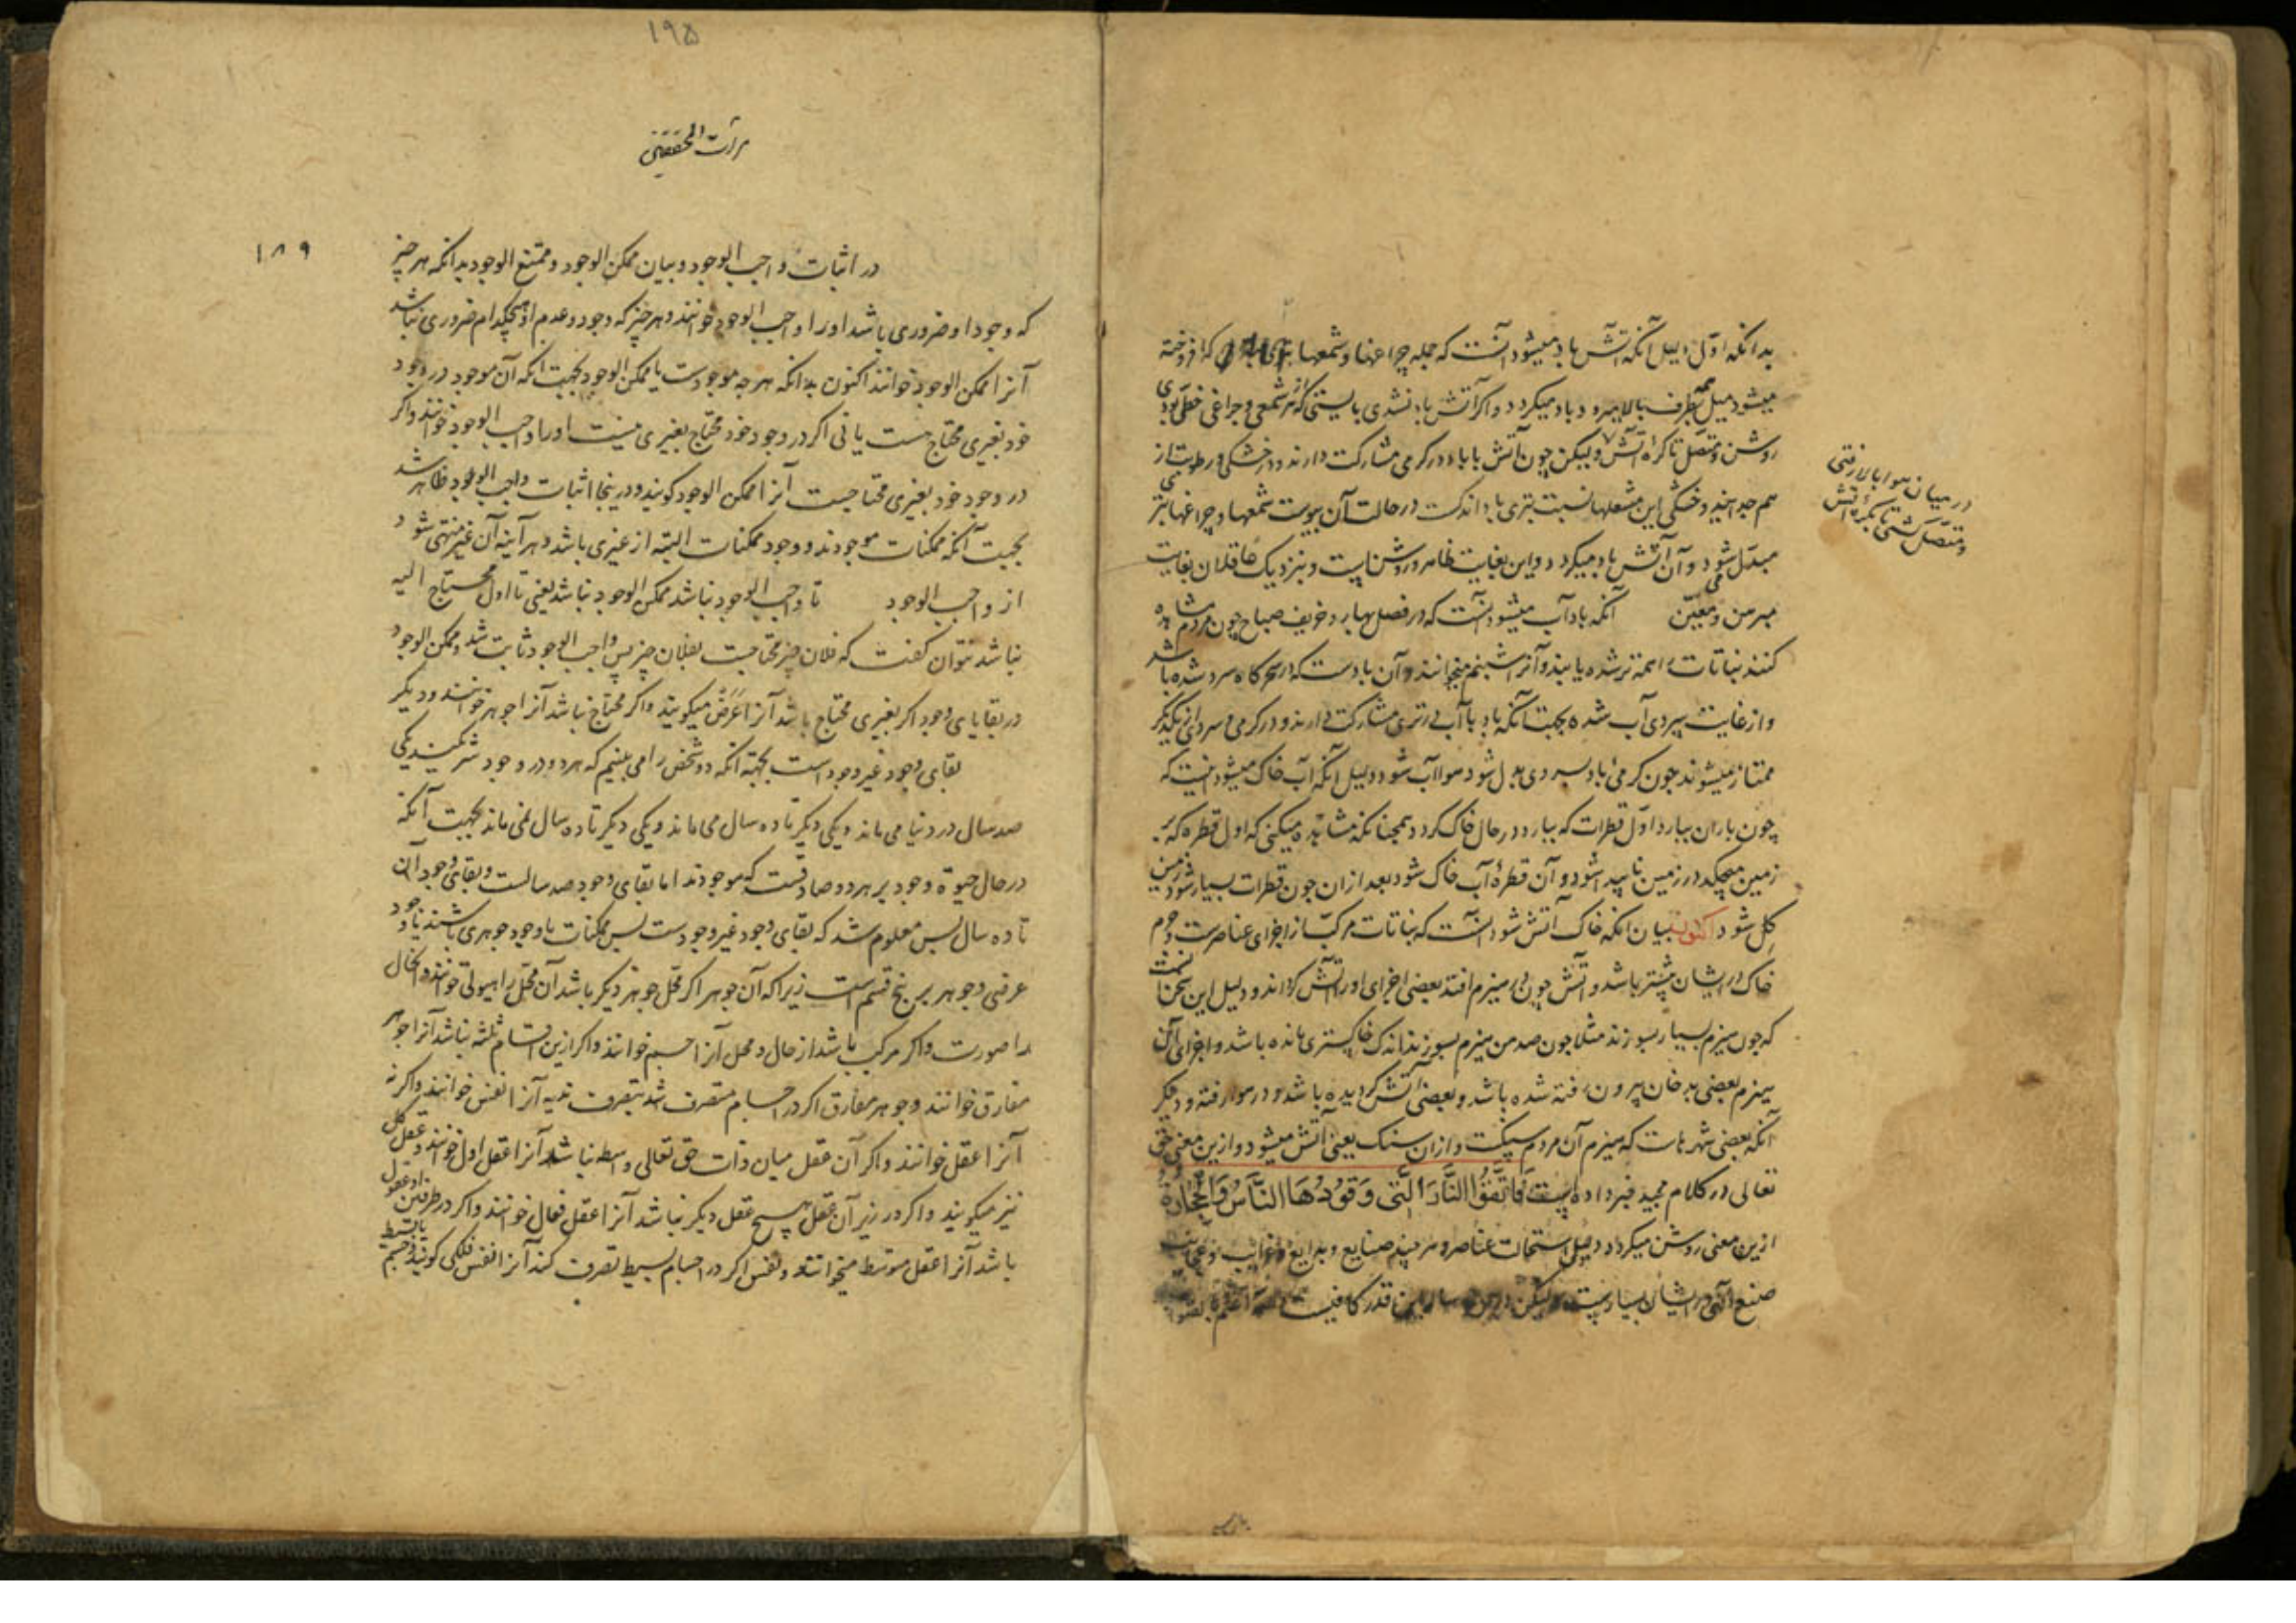 بدانکه اول دلیل آنکه آتش باد میشود آنست که جمله چراغها و شمعها که افروخته
میشود میل همه بطرف بالا میرود و باد میکردد و اکر آتش باد نشدی بایستی که از هر شمعی و چراغی خطی بودی
روشن و متصل تا کره آتش و لیکن چون آتش با باد در کرمی مشارکت دارند و در خشکی و رطوبت از
هم جدااند و خشکی این مشعلها نسبت بتری باد اندکست در حالت آن یبوست شمعها و چراغها بتری
مبدل می شود و آن آتش باد میکردد و این بغایت ظاهر و روشنایست و بنزدیک عاقلان بغایت
مبرهن و معین آنکه باد آب میشود آنست که در فصل بهار و خریف صباح چون مردم مشاهده
کنند نباتات را همه تر شده یابند و آنرا شبنم میخوانند و آن بادست که در سحرکاه سرد شده باشد
و از غایت سردی آب شده بجهت آنکه باد با آب در تری مشارکت دارند و در کرمی و سردی از یکدیکر
ممتاز میشوند چون کرمی باد بسردی بدل شود هوا آب شود و دلیل آنکه آب خاک میشود اینست که
چون باران ببارد اول قطرات که ببارد در حال خاک کردد همچنانکه مشاهده میکنی که اول قطره که بر
زمین میچکد در زمین ناپیدا شود و آن قطره آب خاک شود بعد از ان چون قطرات بسیار شود زمین
کل شود اکنون بیان آنکه خاک آتش شود آنست که نباتات مرکب از اجزای عناصرست و جرم
خاک در ایشان بیشتر باشد و آتش چون در هیزم افتد بعضی اجزای او را آتش کرداند و دلیل این سخن آنست
که چون هیزم بسیار بسوزند مثلا چون صد من هیزم بسوزند اندک خاکستری مانده باشد و اجزای آن
هیزم بعضی بدخان بیرون رفته شده باشد و بعضی آتش کردیده باشد و در هوا رفته و دیکر
آنکه بعضی شهرهاست که هیزم آن مردم سنکست و ازان سنک یعنی آتش میشود و ازین معنی حق
تعالی در کلام مجید خبر داده است فَاتَّقُوا النَّارَ الَّتی وَقُودُهَا النَّاسُ وَالْحِجَارَةُ
ازین معنی روشن میکردد دلیل استحالت عناصر و هر چند صنایع و بدایع و غرایب و عجایب
صنع الهی در ایشان بسیارست و لیکن درین رساله این قدر کافیست
در میان هوا بالا رفتی
و متصل کشتی تا بکره آتش
۱۹۵
مرآت المحققین
۱۸۹
در اثبات واجب الوجود و بیان ممکن الوجود و ممتنع الوجود بدانکه هر چیز
که وجود او ضروری باشد او را واجب الوجود خوانند و هر چیز که وجود و عدم او هیچکدام ضروری نباشد
آنرا ممکن الوجود خوانند اکنون بدانکه هر چه موجودست یا ممکن الوجود بجهت آنکه آن موجود در وجود
خود بغیری محتاج هست یا نی اکر در وجود خود محتاج بغیری نیست او را واجب الوجود خوانند و اکر
در وجود خود بغیری محتاجست آنرا ممکن الوجود کویند و درینجا اثبات واجب الوجود ظاهر شد
بجهت آنکه ممکنات موجودند و وجود ممکنات البته از غیری باشد و هر آینه آن غیر منتهی شود
از واجب الوجود تا واجب الوجود نباشد ممکن الوجود نباشد یعنی تا اول محتاج الیه
نباشد نتوان کفت که فلان چیز محتاجست بفلان چیز پس واجب الوجود ثابت شد و ممکن الوجود
در بقایای وجود اکر بغیری محتاج باشد آنرا عَرَضْ میکویند و اکر محتاج نباشد آنرا جوهر خوانند و دیکر
بقای وجود غیر وجود است بجهته آنکه دو شخص را می بینیم که هر دو در وجود شریکند یکی
صد سال در دنیا می ماند و یکی دیکر تا ده سال می ماند و یکی دیکر تا ده سال نمی ماند بجهت آنکه
در حال حیوة وجود بر هر دو صادقست که موجودند اما بقای وجود صد سالست و بقای وجود آن
تا ده سال پس معلوم شد که بقای وجود غیر وجودست پس ممکنات با وجود جوهری باشند یا وجود
عرضی و جوهر بر پنج قسم است زیرا که آن جوهر اکر محل جوهر دیکر باشد آن محل را هیولی خوانند و آن حال
را صورت و اکر مرکب باشد از حال و محل آنرا جسم خوانند و اکر ازین اقسام ثلثه نباشد آنرا جوهر
مفارق خوانند و جوهر مفارق اکر در اجسام متصرف شد بتصرف تدبیر آنرا نفس خوانند و اکر نه
آنرا عقل خوانند و اکر آن عقل میان ذات حق تعالی واسطه نباشد آنرا عقل اول خوانند و عقل کل
نیز میکویند و اکر در زیر آن عقل هیچ عقل دیکر نباشد آنرا عقل فعال خوانند و اکر در طرفین او عقول
باشد آنرا عقل متوسط میخوانند و نفس اکر در اجسام بسیط تصرف کند آنرا نفس فلکی کویند و جسم